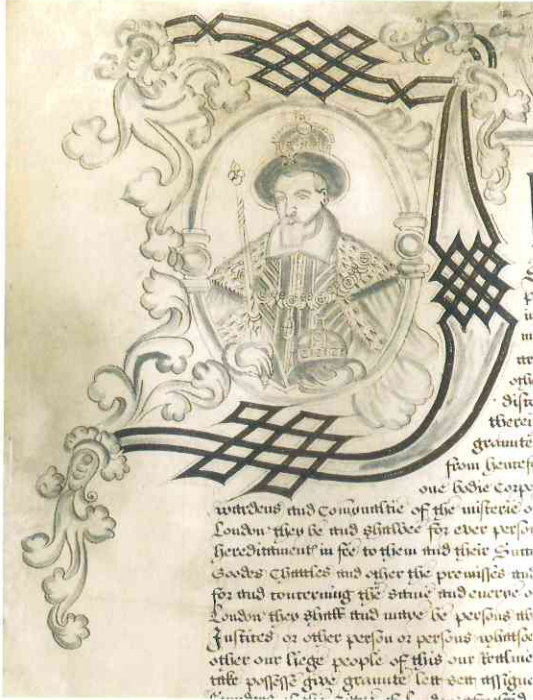 p
in
m
tre
oth
distr
therei
graunte
from hencef
one bodie Corpo
wardens and Comynaltie of the misterie o
London they be and shalbee for ever person
hereditament in fee to them and their Succ
Goodes Chattles and other the premisses and
for and concerning the same and everye o
London they shall and maye be persons ab
Justices or other person or persons whatsoe
other our liege people of this our Realme
take possesse give graunte lett sett assigne